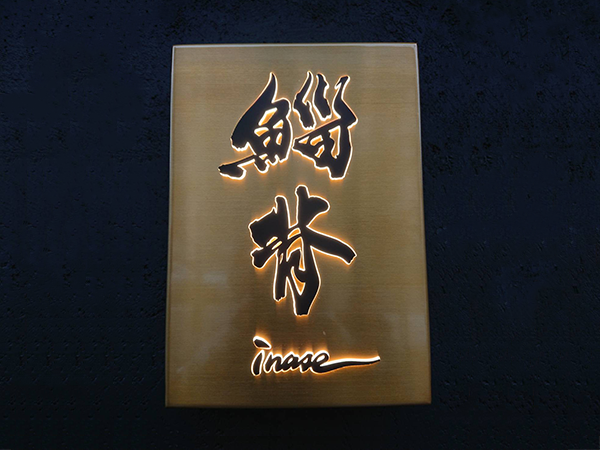 鯔
背
inase